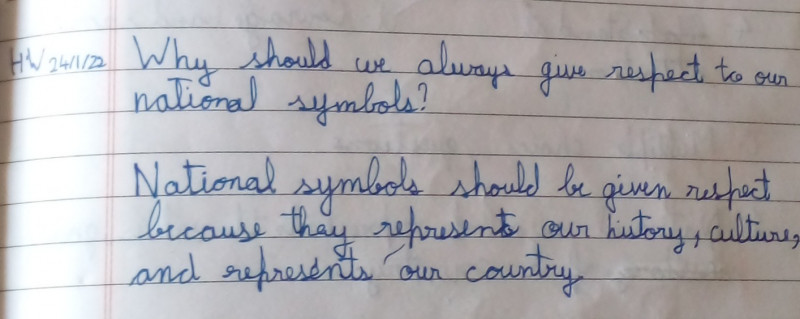 HW 24/1/22 Why should we always give respect to our
national symbols?
National symbols should be given respect
because they represents our history, culture,
and represents our country.